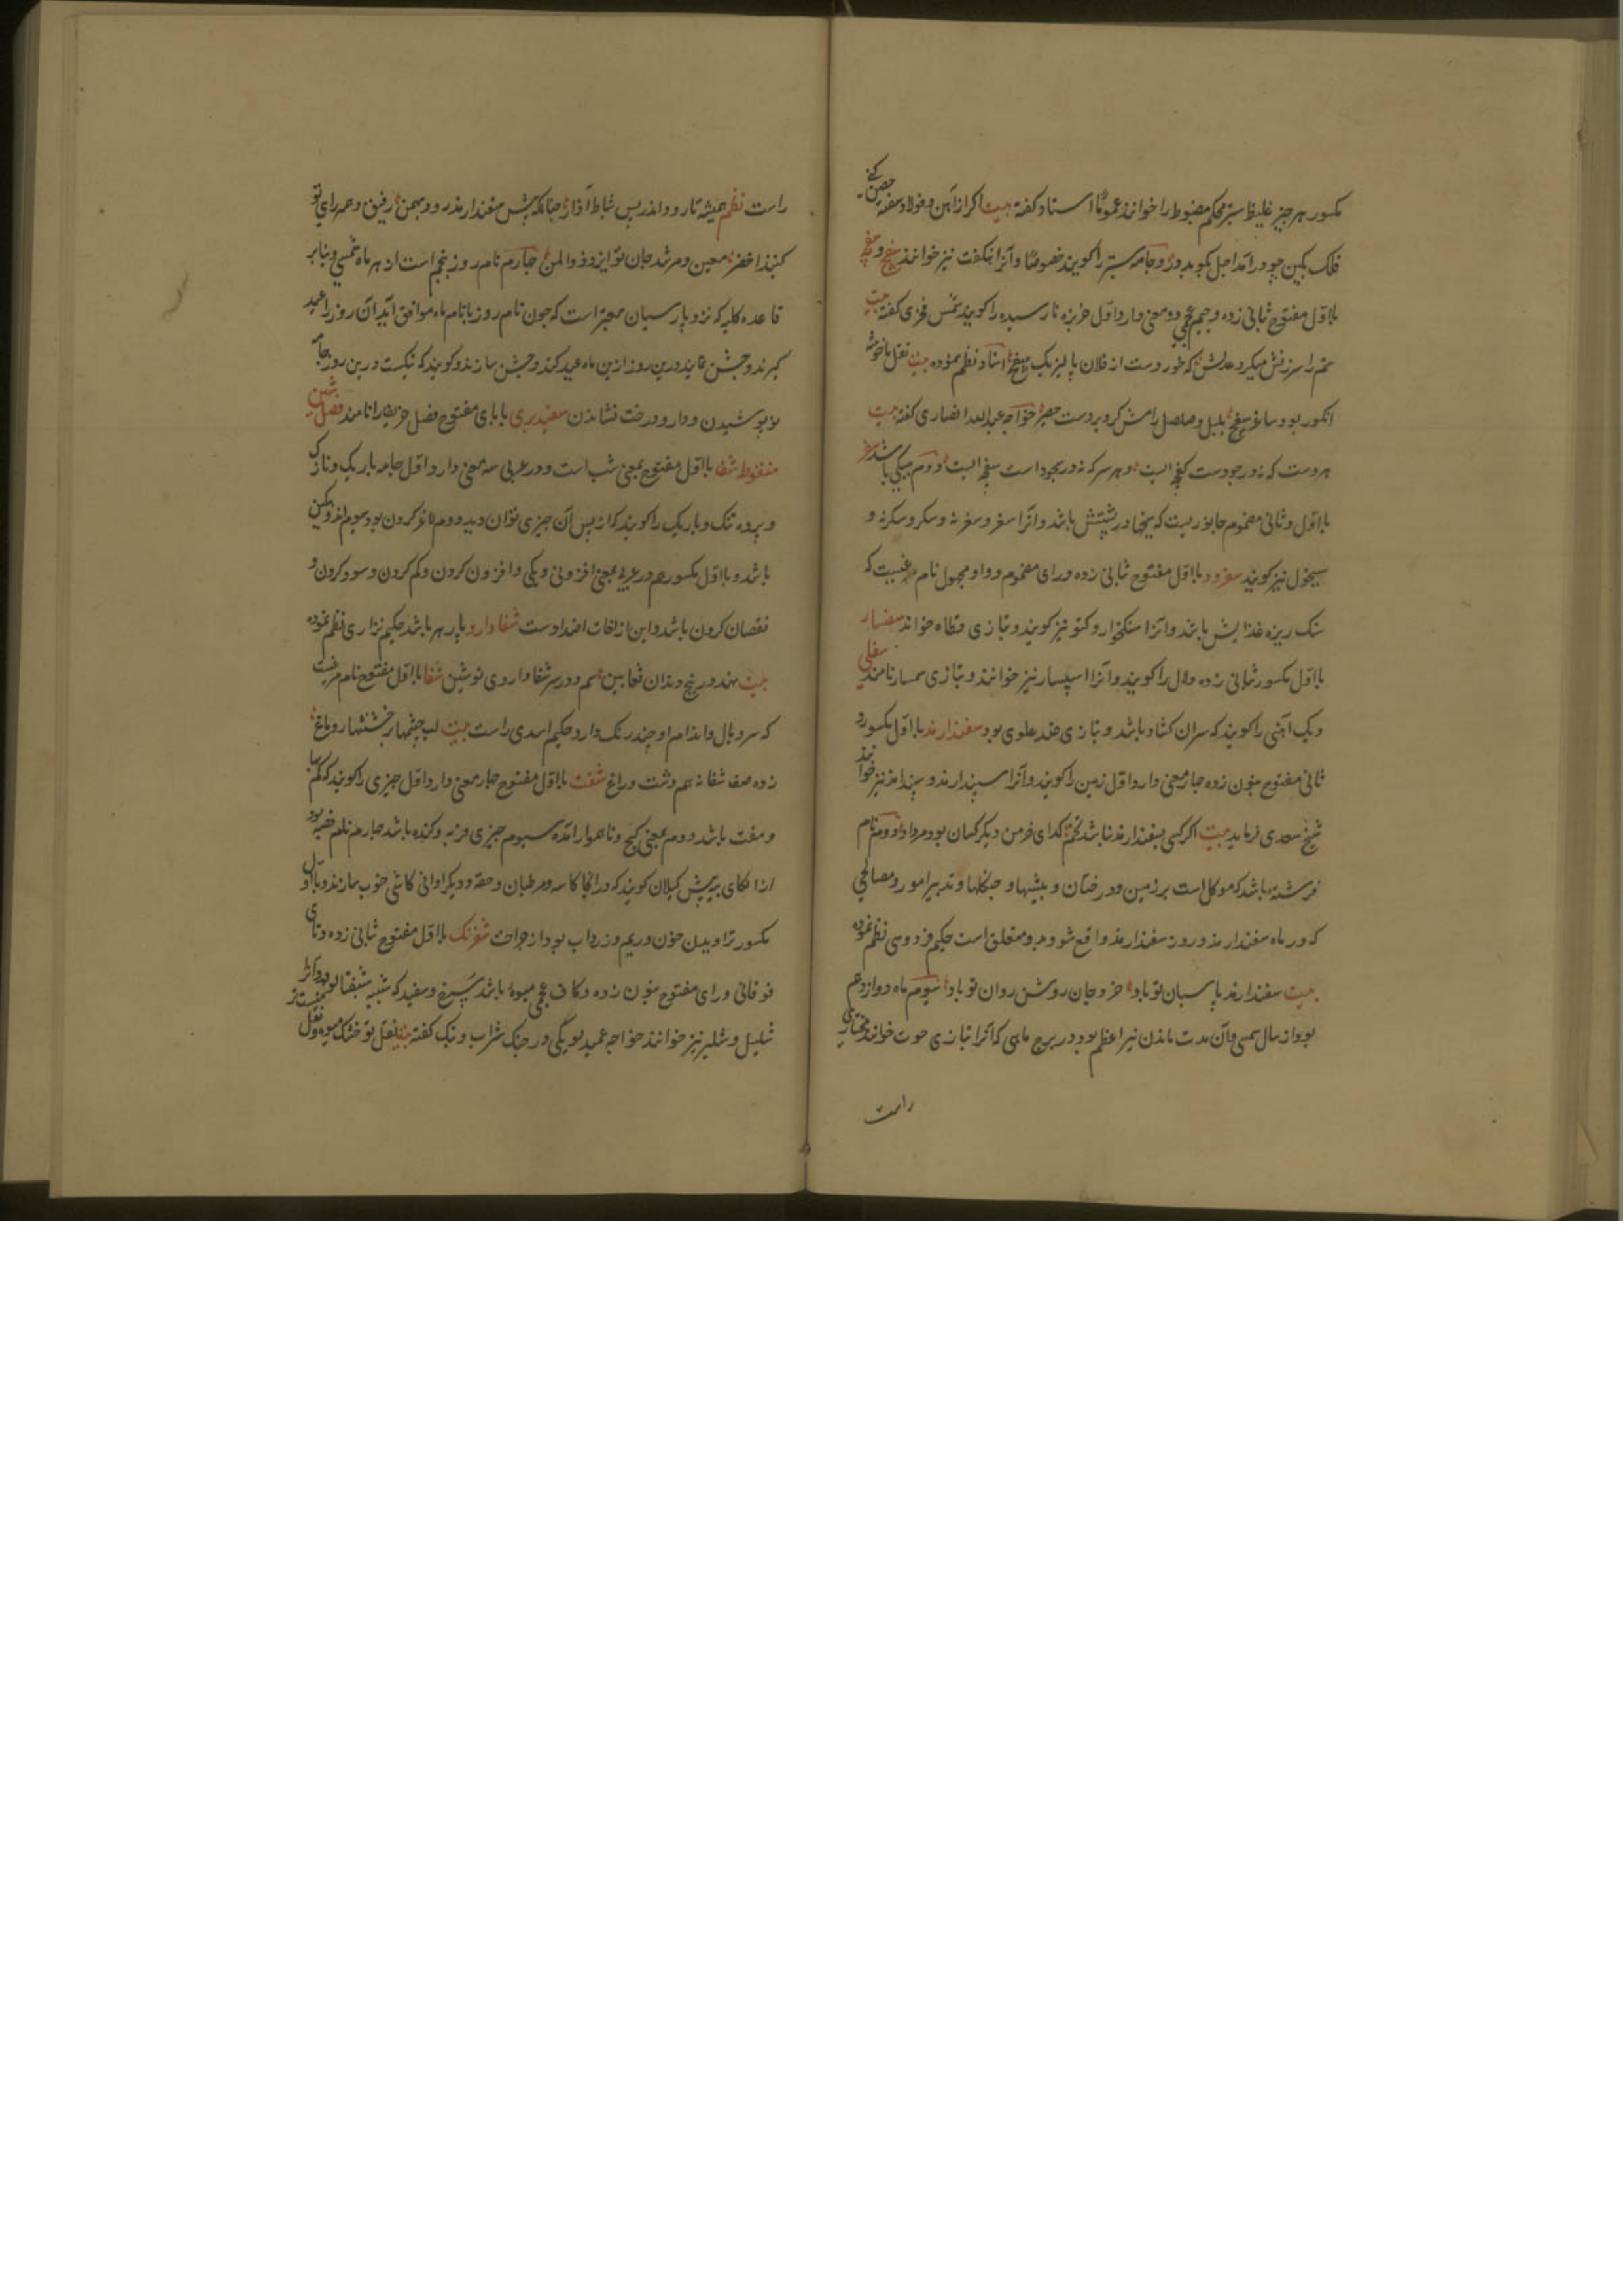 مکسور هر چیز غلیظ ستبر محکم مضبوط را خوانند عموما استاد کفته بیت اکر از آهن و فولاد سفته حصن کنی
فلک بکین چو درآمد اجل بکوبد در و جامه ستبر را کویند خصوصا و آنرا بنکفت نیز خوانند سفج و سفچه
با اول مفتوح ثانی زده و جیم عجمی دو معنی دارد اول خربزه نارسیده را کویند شمس فخری کفته بیت
خصم را سرزنش میکرد عدلش که خور دست از فلان پالیز یک سفچ استاد نظم نموده بیت نقل ما خوشه
انکور بود ساغر سفچ بلبل و صلصل رامش کر و بر دست عصیر خواجه عبدالله انصاری کفته بیت
هر دست که نه در جودست کفچه ایست و هر سر که نه در سجود است سفچه ایست دوم سیکی باشد سغر
با اول و ثانی مضموم جانوریست که سیخها در پشتش باشد و آنرا سغر و سغرنه و سکر و سکرنه و
سیخول نیز کویند سفرود با اول مفتوح ثانی زده و رای مضموم و واو مجهول نام مرغیست که
سنک ریزه غذایش باشد و آنرا سنکخوار و کتو نیز کویند و بتازی قطاه خوانند سفسار
با اول مکسور ثانی زده دلال را کویند و آنرا اسپسار نیز خوانند و بتازی سمسار نامند سفلی
دیک آهنی را کویند که سر آن کشاد باشد و بتازی ضد علوی بود سفندارمذ با اول مکسور و
ثانی مفتوح بنون زده چهار معنی دارد اول زمین را کویند و آنرا سپندارمذ و سپندارمد نیز خوانند
شیخ سعدی فرماید بیت اکر کسی بسفندارمذ نباشد تخم کدای خرمن دیکر کسان بود مرداد دوم نام
فرشته باشد که موکل است بر زمین و درختان و بیشها و جنکلها و تدبیر امور و مصالحی
که در ماه سفندارمذ و روز سفندارمذ واقع شود بدو متعلق است حکیم فردوسی نظم نموده
بیت سفندارمذ پاسبان تو باد خرد جان روشن روان تو باد سوم ماه دوازدهم
بود از سال شمسی و آن مدت ماندن نیر اعظم بود در برج ماهی که آنرا بتازی حوت خوانند مختاری
راست
راست نظم همیشه تا رود اندر پس شباط آذار چنانکه پیش سفندارمذ رود بهمن رفیق و همرای تو
کنبد اخضر معین و مرشد جان تو ایزد ذوالمن چهارم نام روز پنجم است از هر ماه شمسی و بنابر
قاعده کلیه که نزد پارسیان معتبر است که چون نام روز با نام ماه موافق آید آن روز را عید
کیرند و جشن نمایند درین روز ازین ماه عید کنند و جشن سازند و کویند که نیکست درین روز جامه
نو پوشیدن و دار و درخت نشاندن سفیدبری با بای مفتوح فصل خریف را نامند فصل شین
منقوطه شفا با اول مفتوح بمعنی شب است و در عربی سه معنی دارد اول جامه باریک و نازک
و پرده تنک و باریک را کویند که از پس آن چیزی توان دید دوم لاغر کردن بود سوم اندوهکین
باشد و با اول مکسور هم در عربی بمعنی افزونی و یکی و افزون کردن و کم کردن و سود کردن و
نقصان کردن باشد و این از لغات اضداد است شفادارو پازهر باشد حکیم نزاری نظم نموده
بیت نهد در نیج دندان ثعابین سم و در سر شفاداروی نوشین شفا با اول مفتوح نام مرغیست
که سر و بال و اندام او چند رنک دارد حکیم اسدی راست بیت لب چشمها بر خشنشار و ماغ
زده صف شفانه هم دشت و راغ شفت با اول مفتوح چهار معنی دارد اول چیزی را کویند که کم بها
و مفت باشد دوم بمعنی کج و ناهموار آمده سیوم چیزی فربه و کنده باشد چهارم نام قصبه بود
از الکای بیه پیش کیلان کویند که در آنجا کاسه و مرطبان و حقه و دیکر اوانی کاشی خوب سازند و با اول
مکسور تراویدن خون و ریم و زرداب بود از جراحت شفترنک با اول مفتوح ثانی زده و تای
فوقانی و رای مفتوح بنون زده و کاف عجمی میوه باشد سرخ و سفید که شبیه شفتالو بود و آنرا
شلیل و شلیر نیز خوانند خواجه عمید لویکی در جنک شراب و بنک کفته بیت نقل تو خشک میوه و نقل